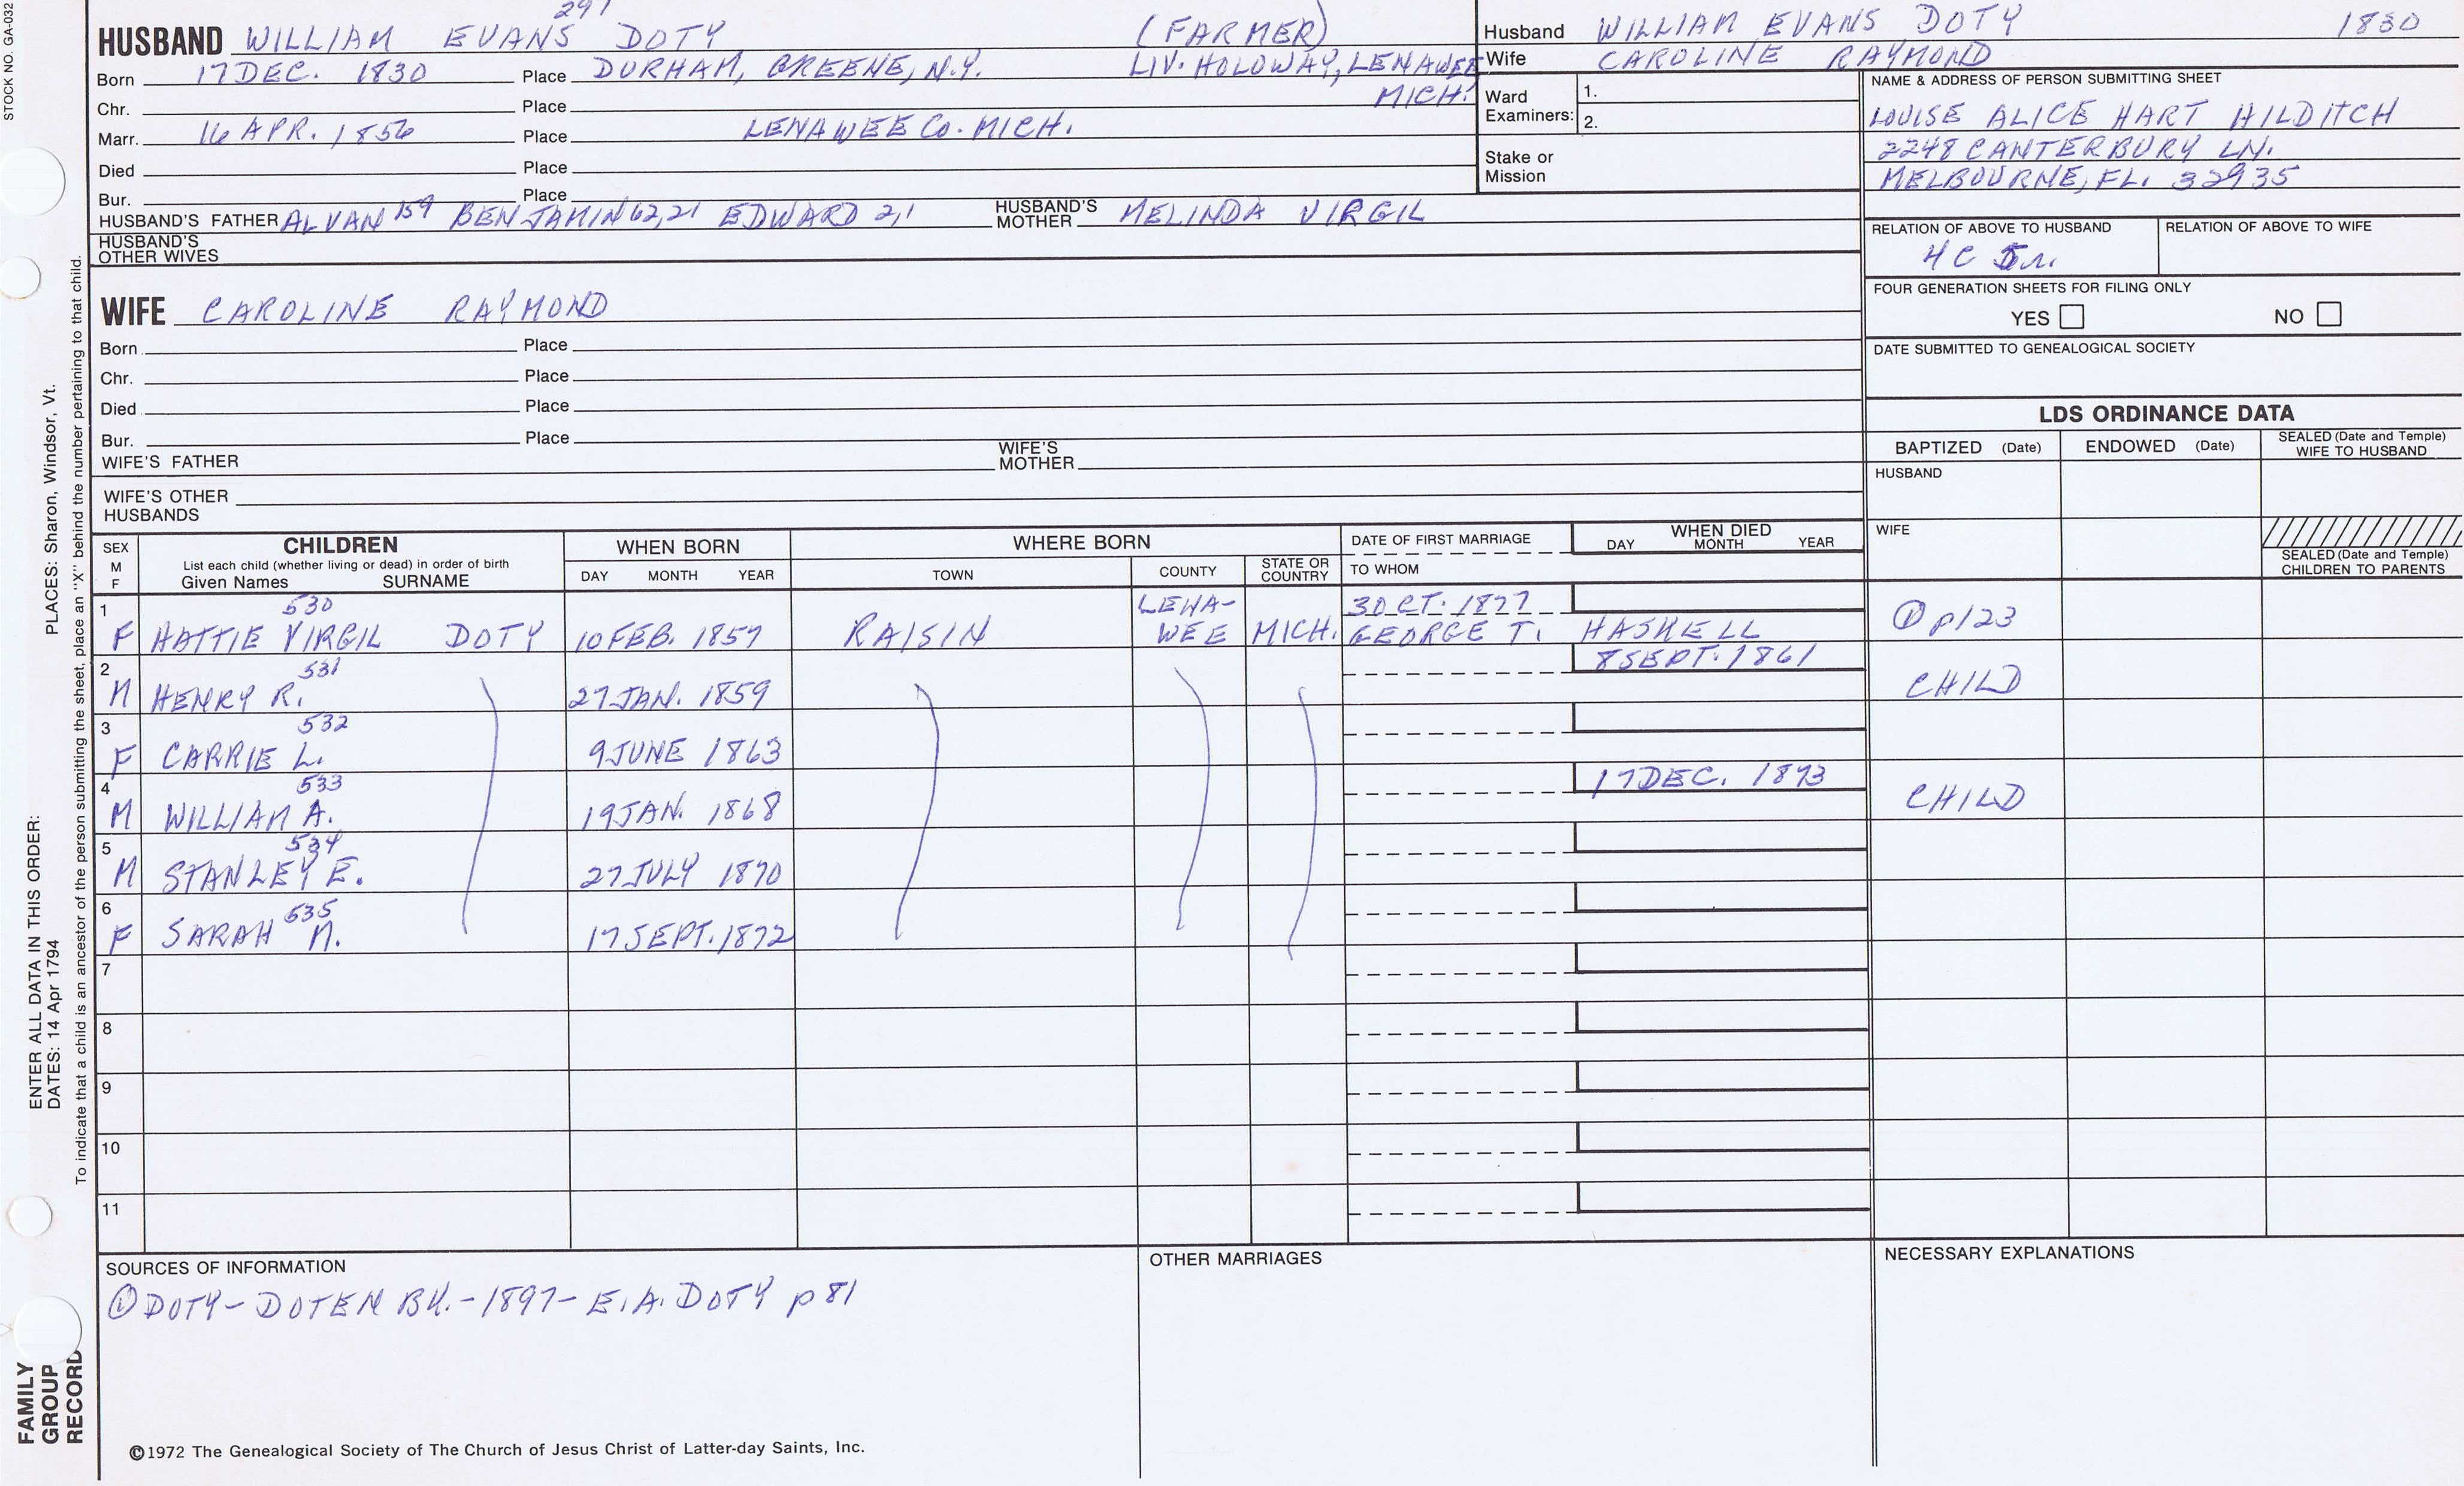 STOCK NO. GA-032
297
HUSBAND WILLIAM EVANS DOTY (FARMER)
Born 17 DEC. 1830 Place DURHAM, GREENE, N.Y. LIV. HOLOWAY, LENAWEE
MICH.
Chr. Place
Marr. 16 APR. 1856 Place LENAWEE CO. MICH.
Died Place
Bur. Place
HUSBAND'S FATHER ALVAN 159 BENJAMIN 62,21 EDWARD 2,1 HUSBAND'S MOTHER MELINDA VIRGIL
HUSBAND'S
OTHER WIVES
Husband WILLIAM EVANS DOTY 1830
Wife CAROLINE RAYMOND
Ward
Examiners:
1.
2.
Stake or
Mission
NAME & ADDRESS OF PERSON SUBMITTING SHEET
LOUISE ALICE HART HILDITCH
2248 CANTERBURY LN.
MELBOURNE, FL. 32935
RELATION OF ABOVE TO HUSBAND RELATION OF ABOVE TO WIFE
4C 5r.
FOUR GENERATION SHEETS FOR FILING ONLY
YES NO
DATE SUBMITTED TO GENEALOGICAL SOCIETY
WIFE CAROLINE RAYMOND
Born Place
Chr. Place
Died Place
Bur. Place
WIFE'S FATHER WIFE'S MOTHER
WIFE'S OTHER
HUSBANDS
LDS ORDINANCE DATA
BAPTIZED (Date) ENDOWED (Date) SEALED (Date and Temple) WIFE TO HUSBAND
HUSBAND
WIFE
SEALED (Date and Temple)
CHILDREN TO PARENTS
SEX
M
F
CHILDREN
List each child (whether living or dead) in order of birth
Given Names SURNAME
WHEN BORN
DAY MONTH YEAR
WHERE BORN
TOWN COUNTY STATE OR COUNTRY
DATE OF FIRST MARRIAGE
TO WHOM
WHEN DIED
DAY MONTH YEAR
1 530 LENA- 3 OCT. 1877
F HATTIE VIRGIL DOTY 10 FEB. 1857 RAISIN WEE MICH. GEORGE T. HASKELL ① p123
2 531 8 SEPT. 1861
M HENRY R. 27 JAN. 1859 CHILD
3 532
F CARRIE L. 9 JUNE 1863
4 533 17 DEC. 1873
M WILLIAM A. 19 JAN. 1868 CHILD
5 534
M STANLEY E. 27 JULY 1870
6 535
F SARAH M. 17 SEPT. 1872
7
8
9
10
11
SOURCES OF INFORMATION
① DOTY-DOTEN BK.-1897-E.A. DOTY p 81
OTHER MARRIAGES
NECESSARY EXPLANATIONS
©1972 The Genealogical Society of The Church of Jesus Christ of Latter-day Saints, Inc.
ENTER ALL DATA IN THIS ORDER:
DATES: 14 Apr 1794
PLACES: Sharon, Windsor, Vt.
To indicate that a child is an ancestor of the person submitting the sheet, place an "X" behind the number pertaining to that child.
FAMILY
GROUP
RECORD